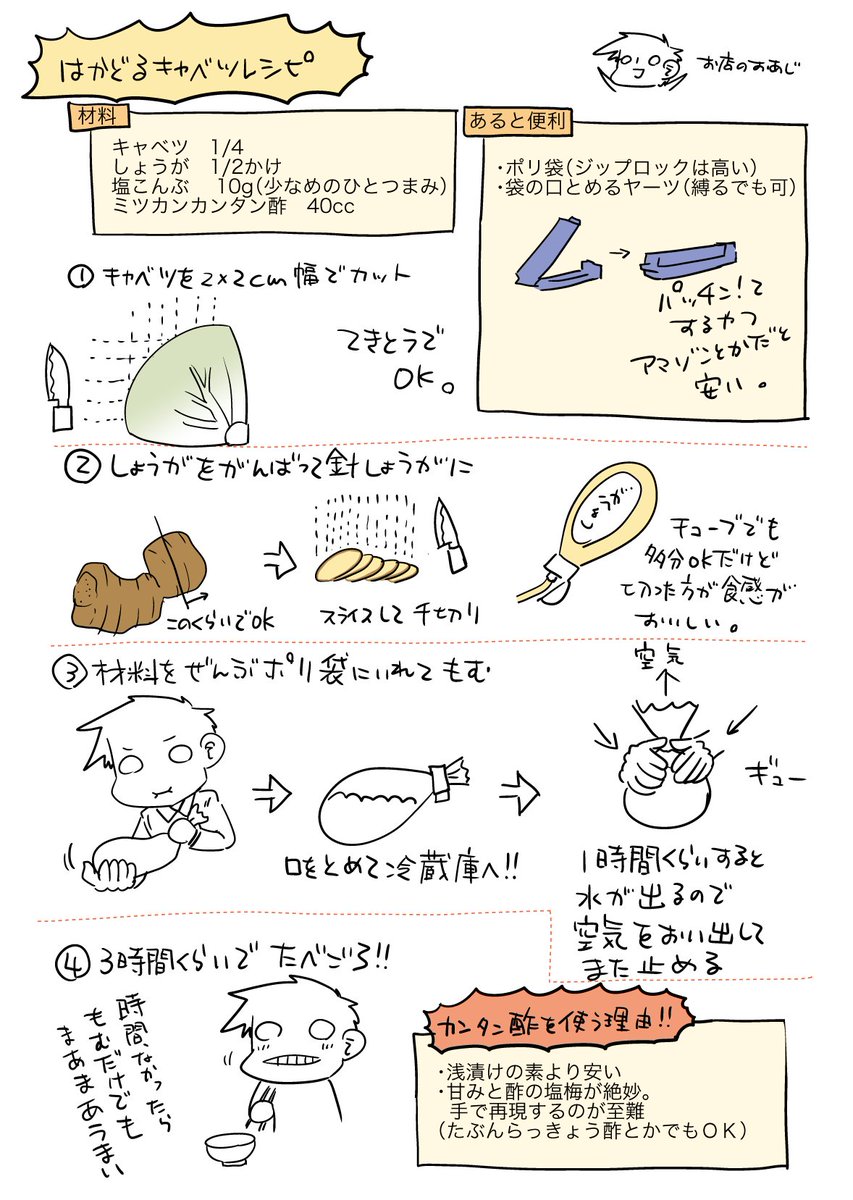 はかどるキャベツレシピ
お店のおあじ
材料
キャベツ 1/4
しょうが 1/2かけ
塩こんぶ 10g(少なめのひとつまみ)
ミツカンカンタン酢 40cc
あると便利
・ポリ袋(ジップロックは高い)
・袋の口とめるヤーツ(縛るでも可)
パッチン!て
するやつ
アマゾンとかだと
安い。
①キャベツを2×2cm幅でカット
てきとうで
OK。
②しょうがをがんばって針しょうがに
このくらいでOK
スライスして千切り
しょうが…
チューブでも
多分OKだけど
切った方が食感が
おいしい。
③材料をぜんぶポリ袋にいれてもむ
口をとめて冷蔵庫へ!!
空気
ギュー
1時間くらいすると
水が出るので
空気をおい出して
また止める
④3時間くらいでたべごろ!!
時間なかったら
もむだけでも
まあまあうまい
カンタン酢を使う理由!!
・浅漬けの素より安い
・甘みと酢の塩梅が絶妙。
手で再現するのが至難
(たぶんらっきょう酢とかでもOK)